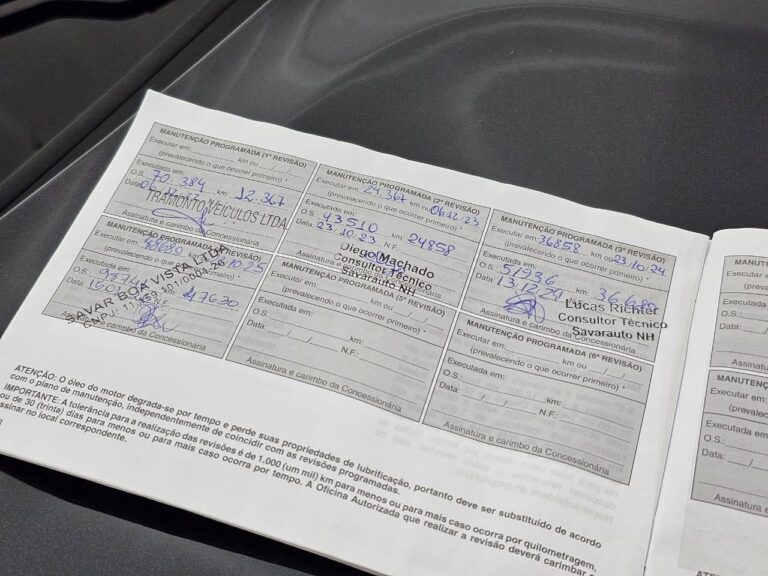 MANUTENÇÃO PROGRAMADA (1ª REVISÃO)
Executar em: km ou / /
(prevalecendo o que ocorrer primeiro) *
Executada em:
O.S.: 70.384 km: 12.367
Data: 06.12.
TRAMONTO VEÍCULOS LTDA
Assinatura e carimbo da Concessionária
MANUTENÇÃO PROGRAMADA (2ª REVISÃO)
Executar em: 24.367 km ou 06.12.23
(prevalecendo o que ocorrer primeiro) *
Executada em:
O.S.: 43510 km: 24858
Data: 23.10.23 N.F.
Diego Machado
Consultor Técnico
Savarauto NH
Assinatura
MANUTENÇÃO PROGRAMADA (3ª REVISÃO)
Executar em: 36858 km ou 23/10/24
(prevalecendo o que ocorrer primeiro) *
Executada em:
O.S.: 51936 km:
Data: 13.12.24
Lucas Richter
Consultor Técnico
Savarauto NH
Assinatura e carimbo da Concessionária
Executar em:
(prevalecendo o que ocorrer primeiro) *
Executada em:
O.S.:
Data:
SAVAR BOA VISTA LTDA
CNPJ:
Assinatura e carimbo da Concessionária
MANUTENÇÃO PROGRAMADA (5ª REVISÃO)
Executar em: km ou / /
(prevalecendo o que ocorrer primeiro) *
Executada em:
O.S.: km:
Data: / / N.F.:
Assinatura e carimbo da Concessionária
MANUTENÇÃO PROGRAMADA (6ª REVISÃO)
Executar em: km ou / /
(prevalecendo o que ocorrer primeiro) *
Executada em:
O.S.: km:
Data: / / N.F.:
Assinatura e carimbo da Concessionária
ATENÇÃO: O óleo do motor degrada-se por tempo e perde suas propriedades de lubrificação, portanto deve ser substituído de acordo
com o plano de manutenção, independentemente de coincidir com as revisões programadas.
IMPORTANTE: A tolerância para a realização das revisões é de 1.000 (um mil) km para menos ou para mais caso ocorra por quilometragem,
ou de 30 (trinta) dias para menos ou para mais caso ocorra por tempo. A Oficina Autorizada que realizar a revisão deverá carimbar
assinar no local correspondente.
MANUTENÇ
Executar em:
(prevalec
Executada
O.S.:
Data: / /
Assinatura
MANUTENÇ
Executar em:
(prevalec
Executada
O.S.:
Data: /
Assinatura e